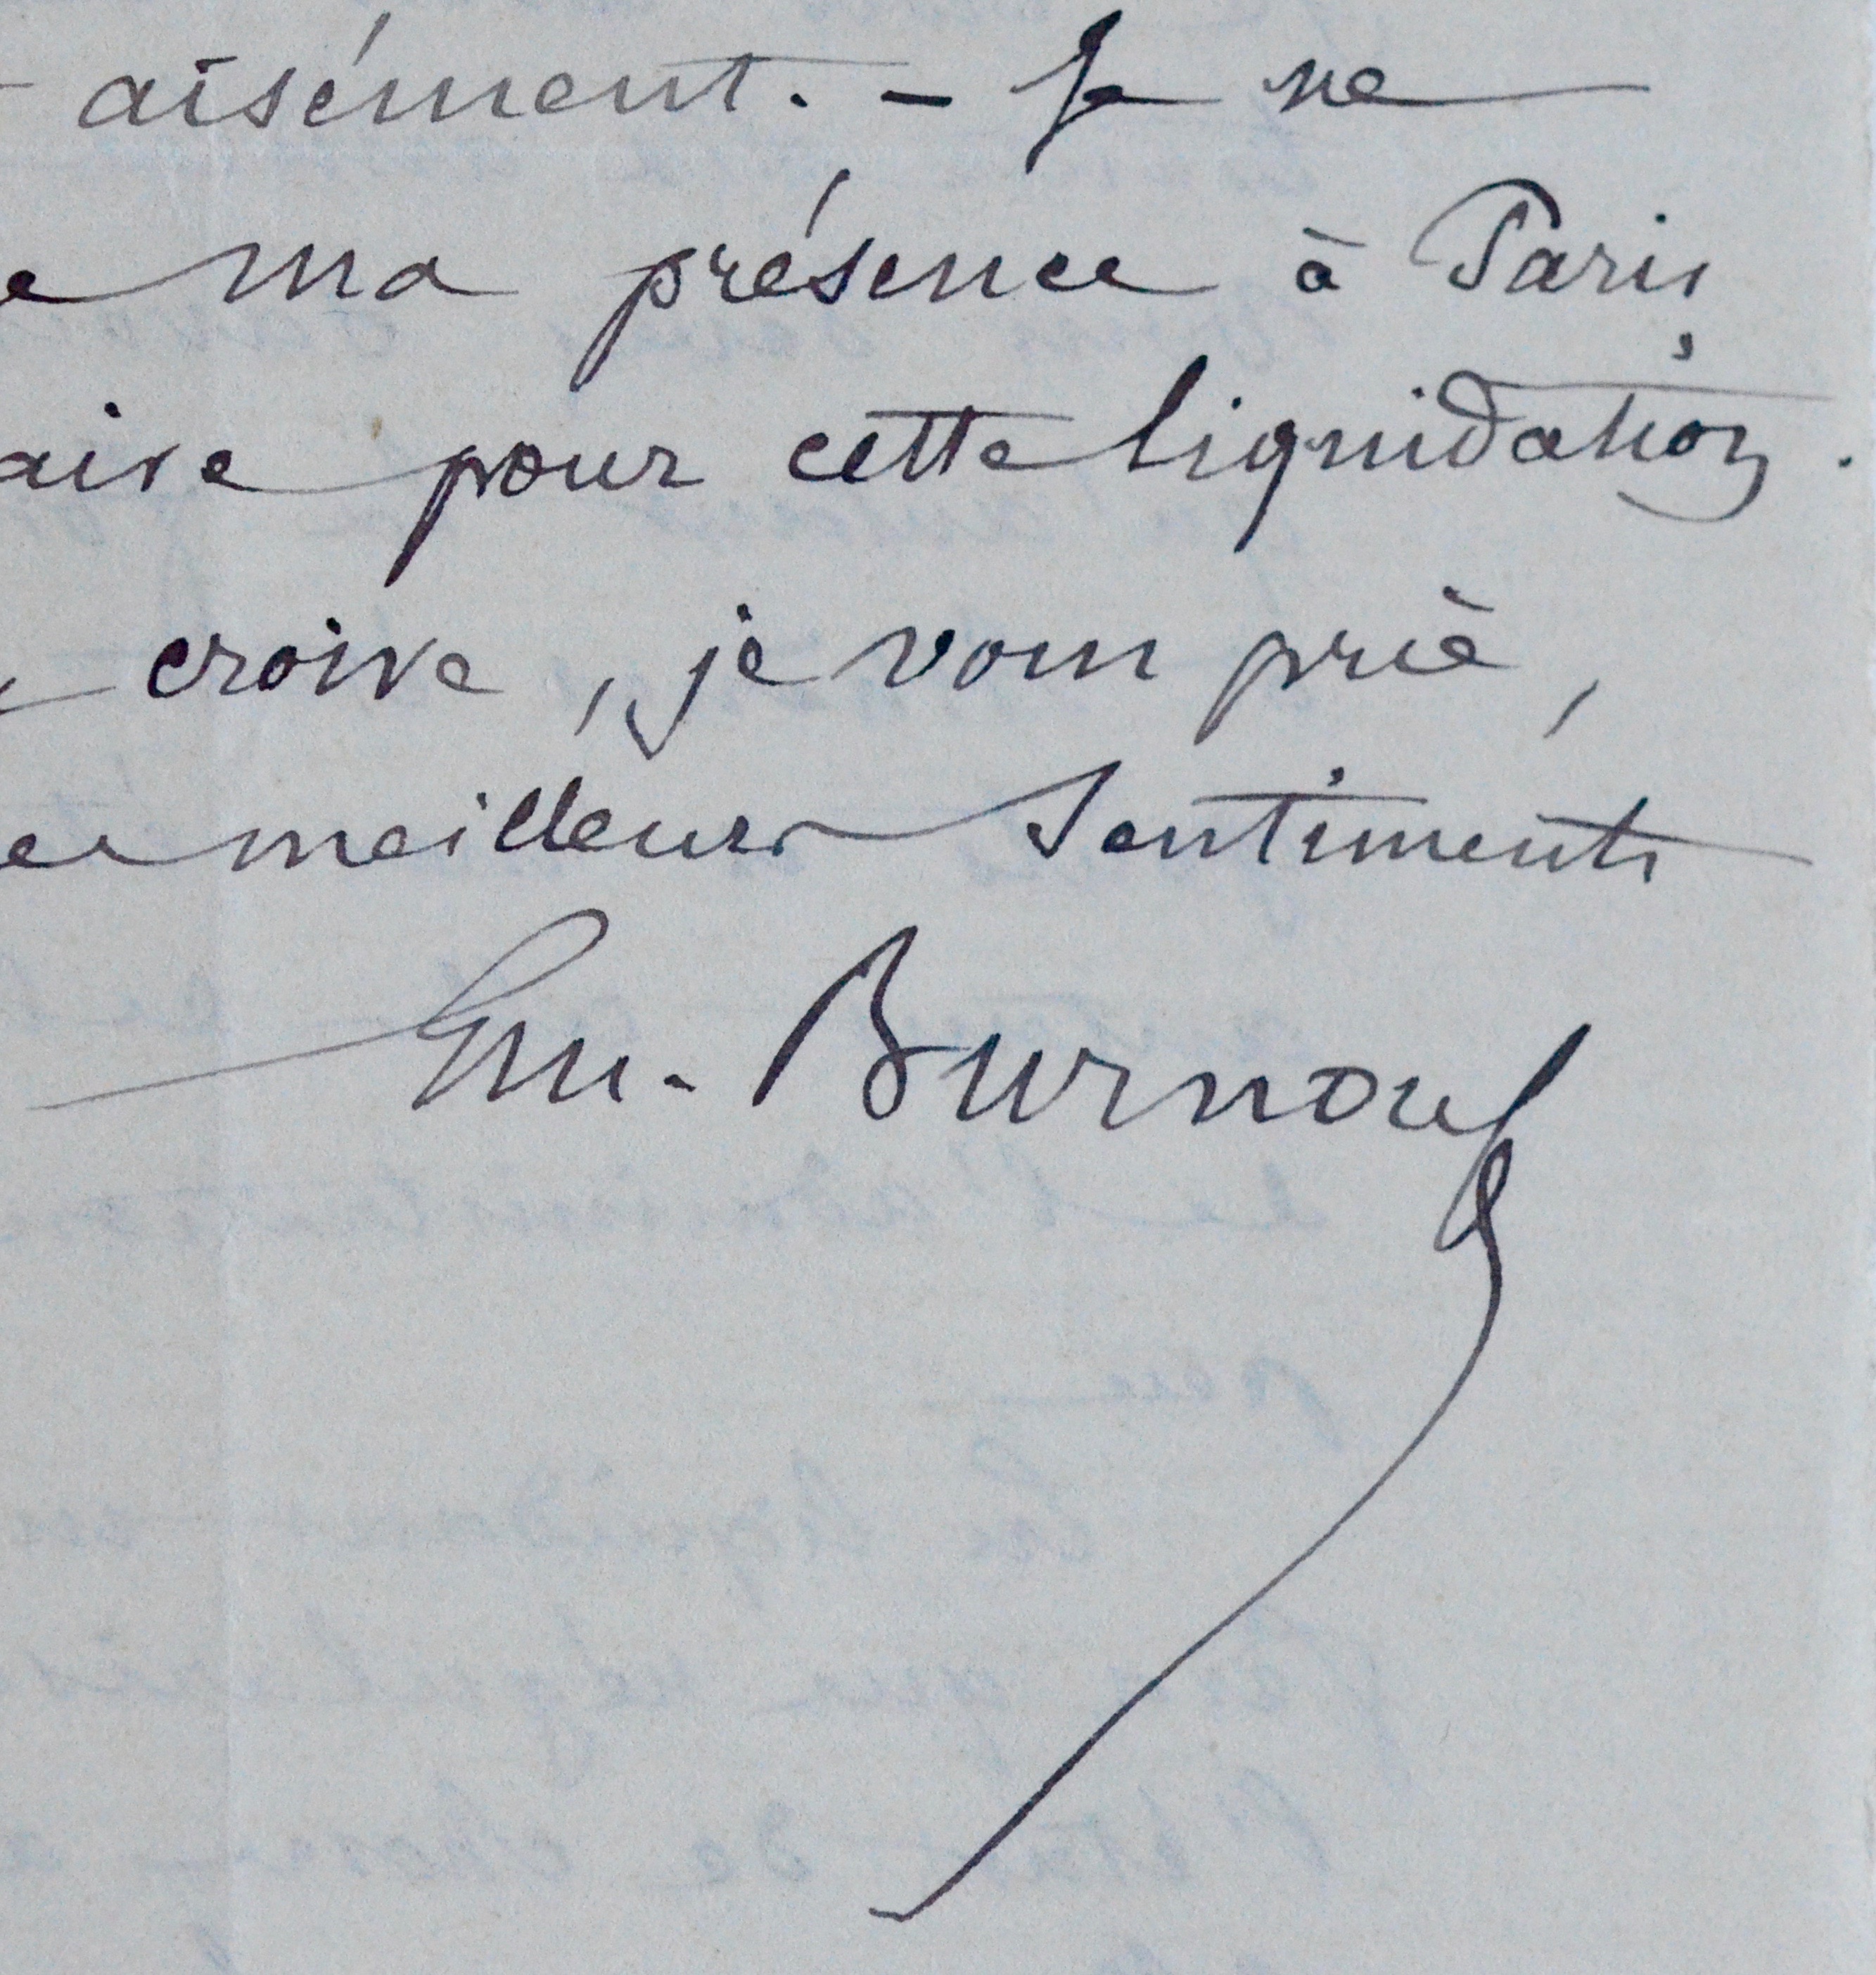 aisément. - Je ne
ma présence à Paris
aire pour cette liquidation.
croire, je vous prie,
meilleurs sentiments
Em. Burnouf